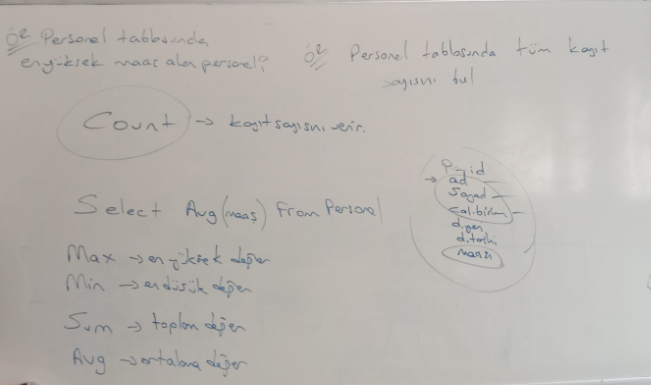 Ör Personel tablosunda
en yüksek maaş alan personel?
Ör Personel tablosunda tüm kayıt
sayısını bul
Count → kayıt sayısını verir.
Select Avg(maaş) From Personel
Max → en yüksek değer
Min → en düşük değer
Sum → toplam değer
Avg → ortalama değer
P-id
→ ad
Soyad
cal.birim
d.yeri
d.tarihi
maaşı